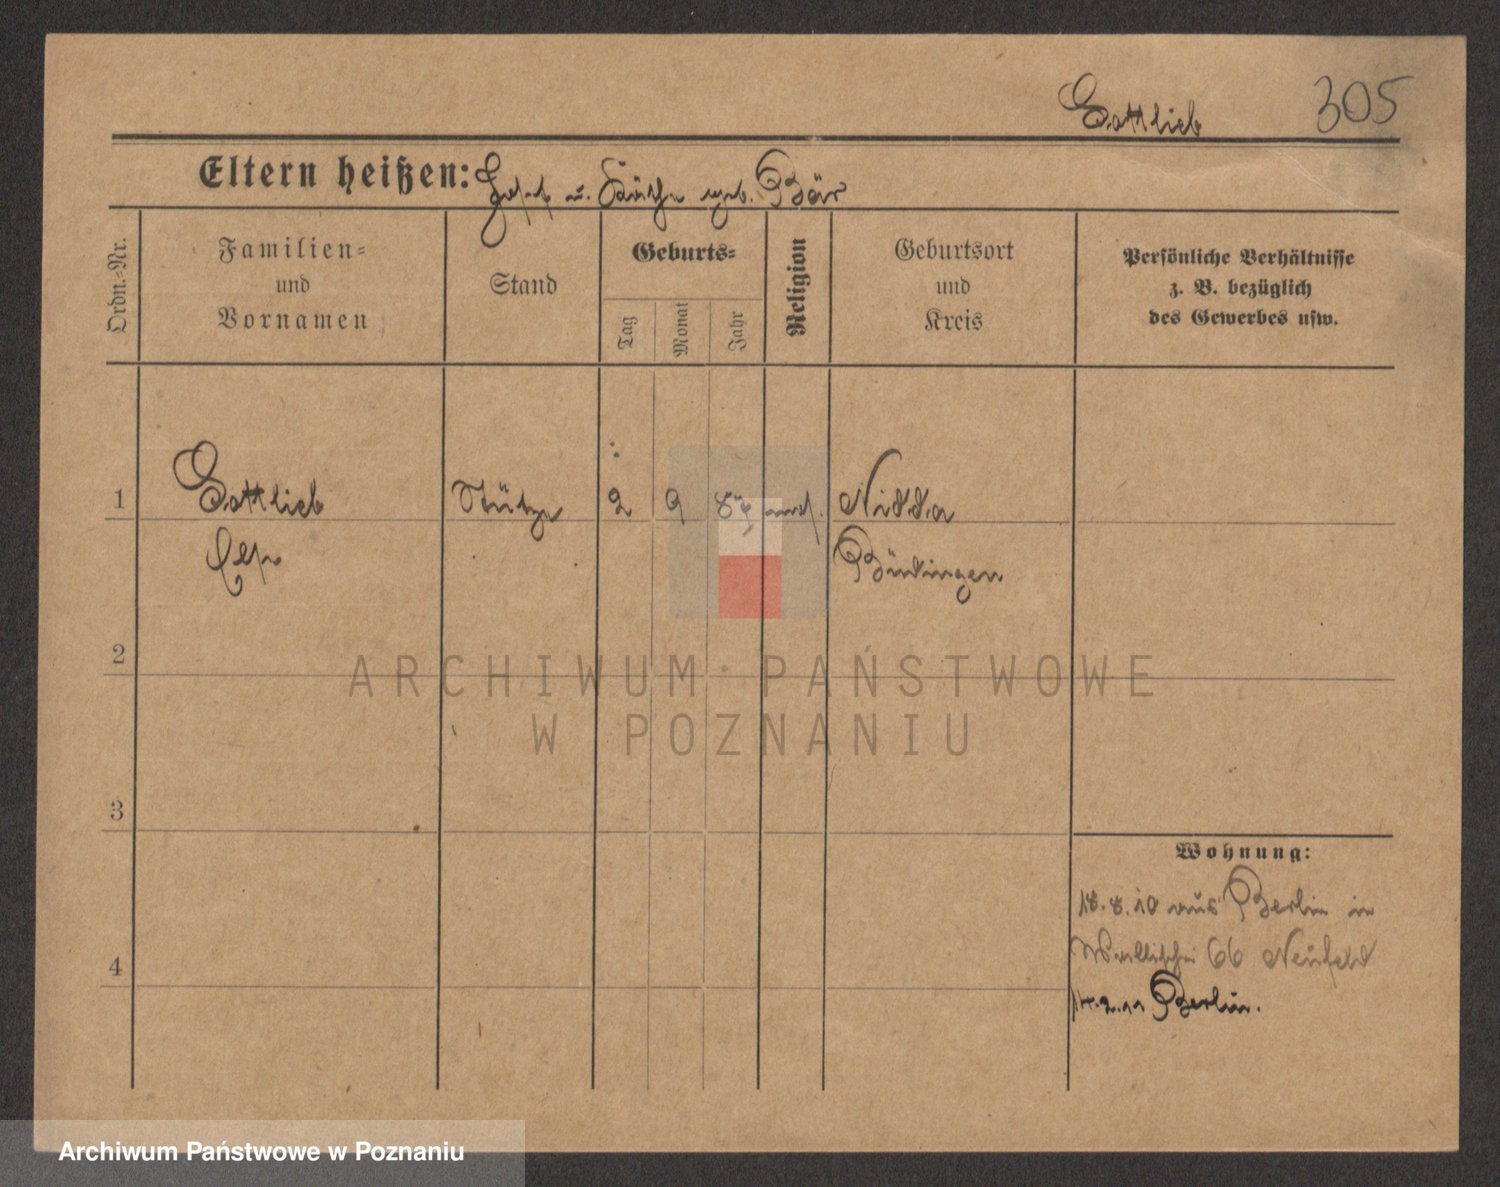 Gottlieb 305
Eltern heißen: Josef u. Käthe geb. Bär
Ordn.-Nr.
Familien-
und
Vornamen
Stand
Geburts-
Tag
Monat
Jahr
Religion
Geburtsort
und
Kreis
Persönliche Verhältnisse
z. B. bezüglich
des Gewerbes usw.
1 Gottlieb Stütze 2 9 mos. Nidda
Else Büdingen
2
ARCHIWUM PAŃSTWOWE
W POZNANIU
3
Wohnung:
18.8.10 aus Berlin in
Wallischei 66 Neufeld
4
14.2.11 Berlin.
Archiwum Państwowe w Poznaniu